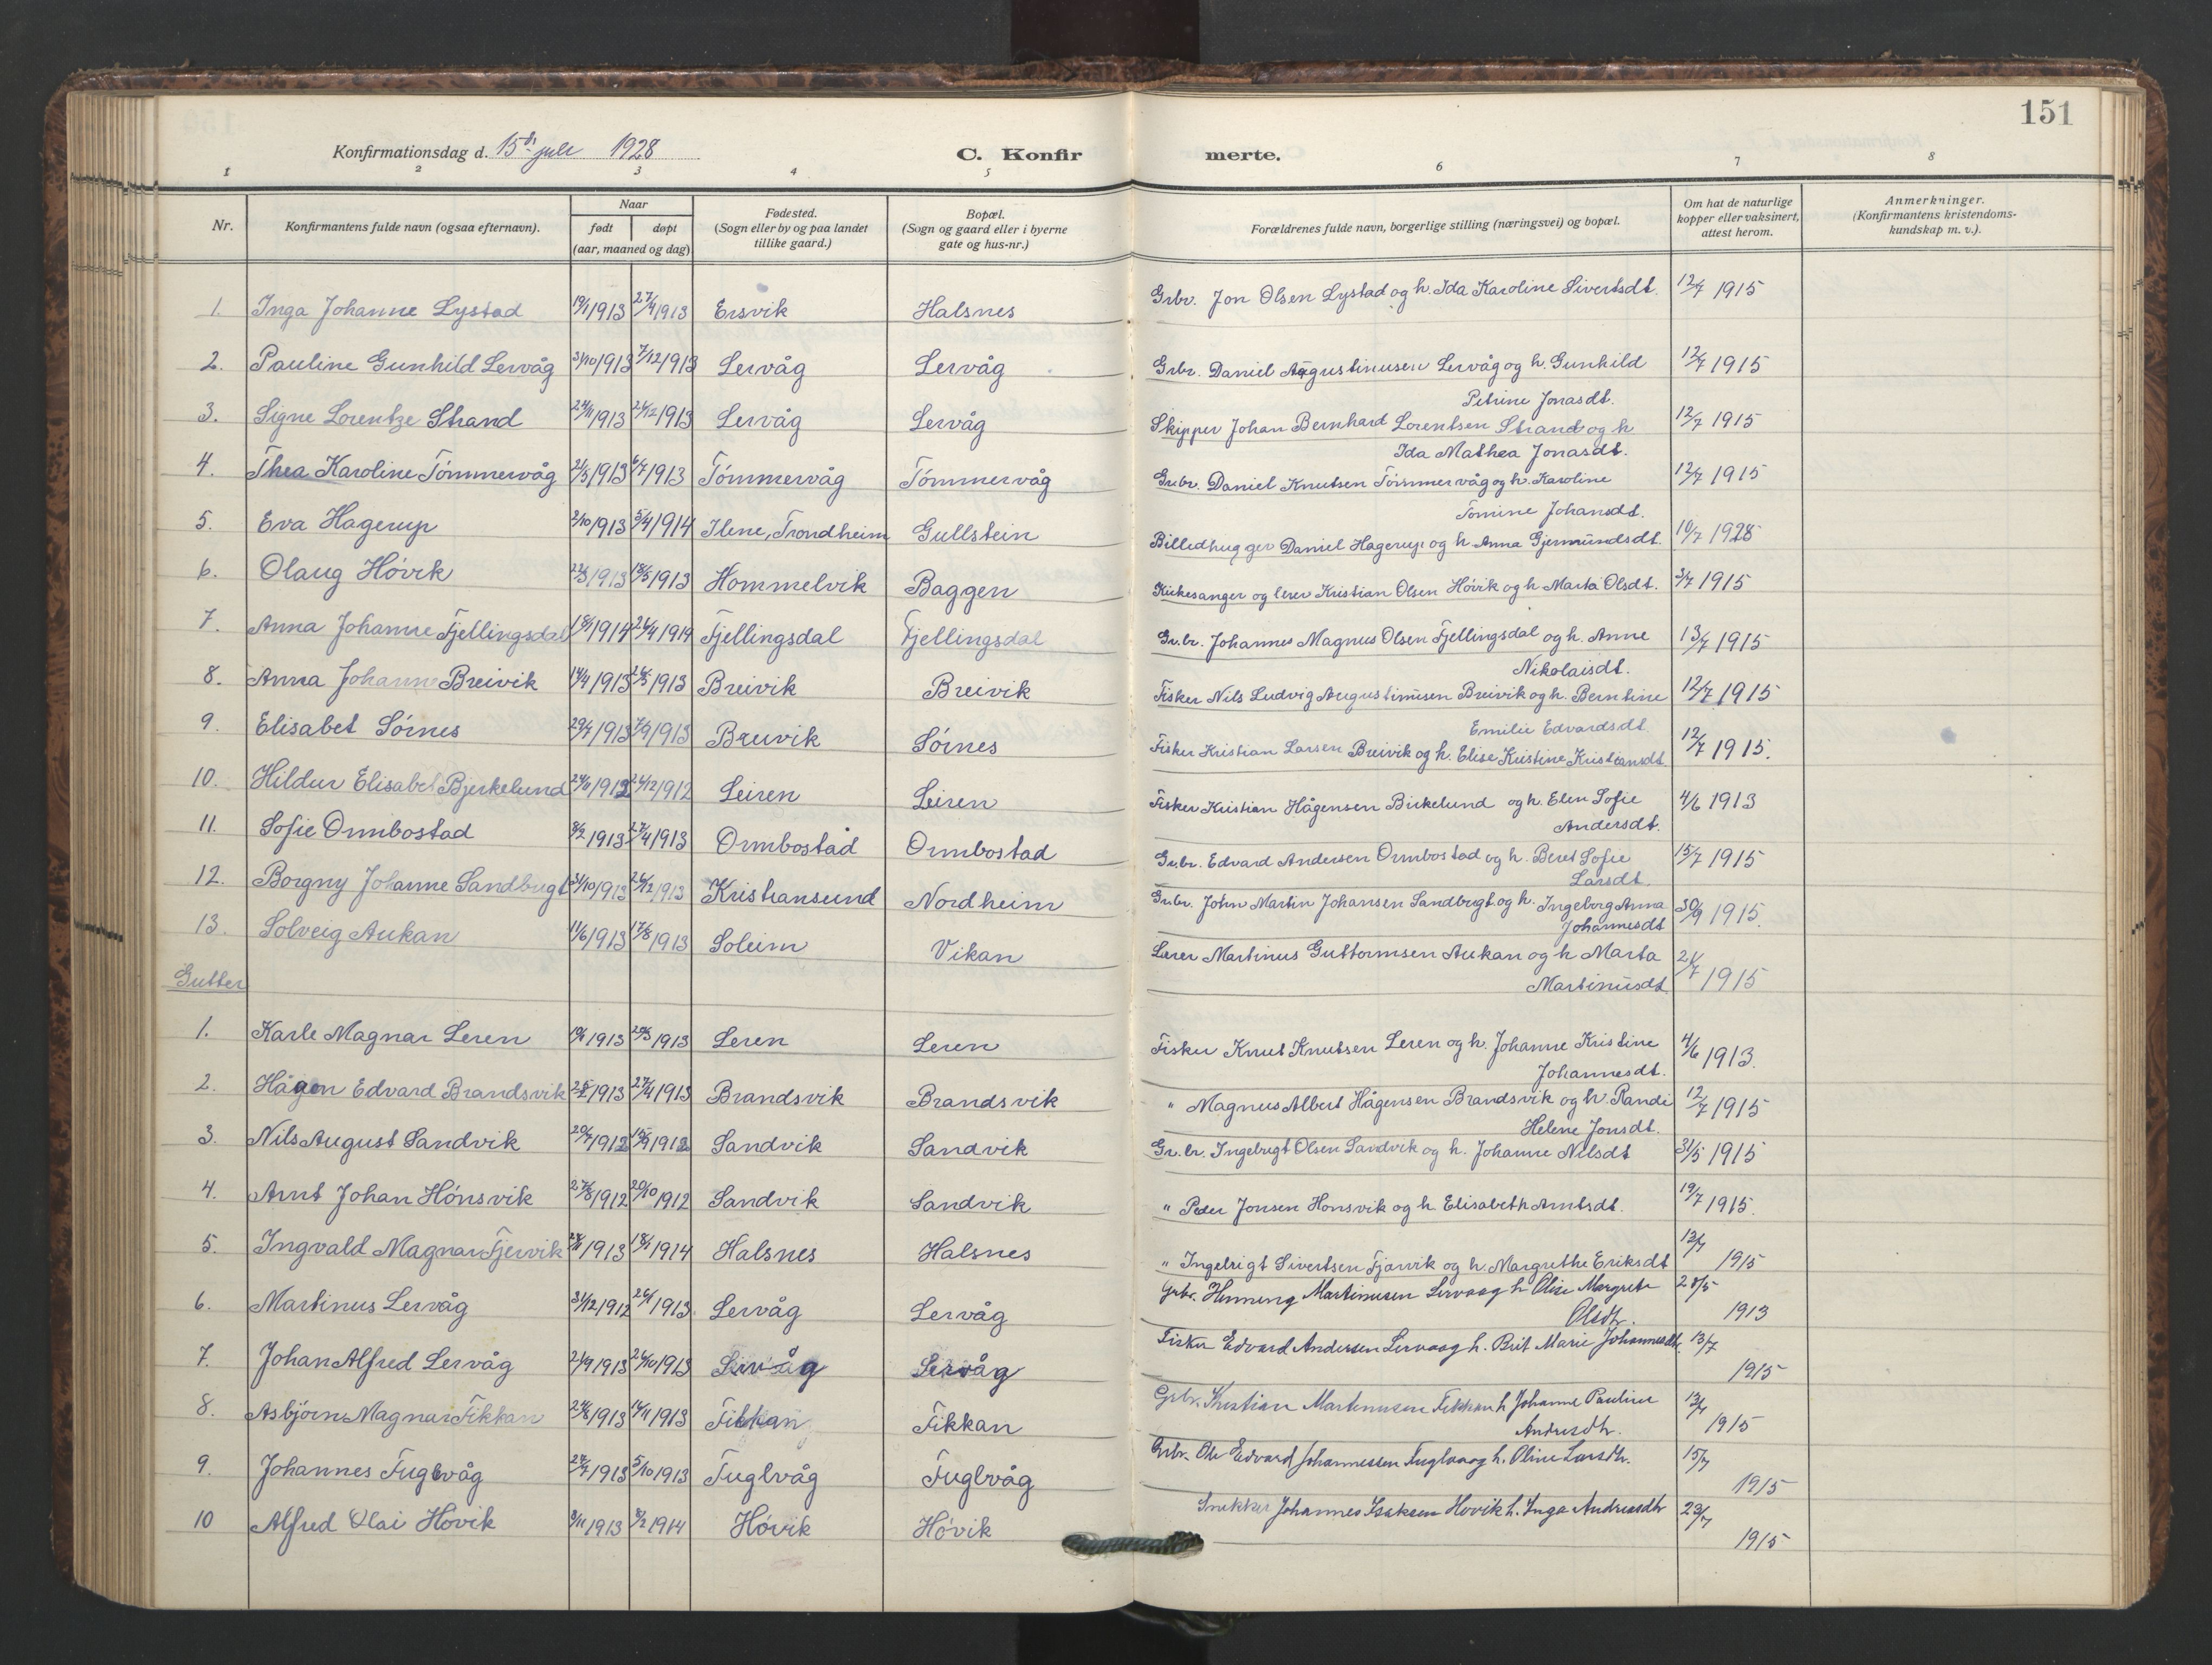 151
Konfirmationsdag d. 15de juli 1928
C. Konfirmerte.
1 2 3 4 5 6 7 8
Nr.
Konfirmantens fulde navn (ogsaa efternavn).
Naar
født
døpt
(aar, maaned og dag)
Fødested.
(Sogn eller by og paa landet
tillike gaard.)
Bopæl.
(Sogn og gaard eller i byerne
gate og hus-nr.)
Forældrenes fulde navn, borgerlige stilling (næringsvei) og bopæl.
Om hat de naturlige
kopper eller vaksinert,
attest herom.
Anmerkninger.
(Konfirmantens kristendoms-
kundskap m. v.).
1. Inga Johanne Lystad 19/1 1913 27/4 1913 Ersvik Halsnes Grbr. Jon Olsen Lystad og h. Ida Karoline Sivertsdt. 12/7 1915
2. Pauline Gunhild Lervåg 31/10 1913 7/12 1913 Lervåg Lervåg Grbr. Daniel Augustinusen Lervåg og h. Gunhild 12/7 1915
Petrine Jonasdt.
3. Signe Lorentze Strand 24/11 1913 26/12 1913 Lervåg Lervåg Skipper Johan Bernhard Lorentsen Strand og h 12/7 1915
Ida Mathea Jonasdt.
4. Thea Karoline Tömmervåg 21/5 1913 6/7 1913 Tömmervåg Tömmervåg Grbr. Daniel Knutsen Tömmervåg og h. Karoline 12/7 1915
Tomine Johansdt.
5. Eva Hagerup 2/10 1913 5/4 1914 Ilene, Trondheim Gullstein Billedhugger Daniel Hagerup og h. Anna Gjermundsdt. 10/7 1928
6. Olaug Hövik 22/3 1913 18/5 1913 Hommelvik Baggen Kirkesanger og lærer Kristian Olsen Hövik og h Marta Olsdt. 3/7 1915
7. Anna Johanne Fjellingsdal 18/1 1914 26/4 1914 Fjellingsdal Fjellingsdal Gr.br. Johannes Magnus Olsen Fjellingsdal og h. Anne 13/7 1915
Nikolaisdt.
8. Anna Johanne Breivik 14/4 1913 1913 Breivik Breivik Fisker Nils Ludvig Augustinusen Breivik og h. Berntine 12/7 1915
Emilie Edvardsdt.
9. Elisabet Sörnes 29/7 1913 7/9 1913 Breivik Sörnes Fisker Kristian Larsen Breivik og h. Elise Kristine Kristiansdt 12/7 1915.
10. Hildur Elisabet Bjerkelund 1912 26/12 1912 Leiren Leiren Fisker Kristian Hågensen Birkelund og h. Elen Sofie 4/6 1913
Andersdt.
11. Sofie Ormbostad 8/2 1913 27/4 1913 Ormbostad Ormbostad Grbr. Edvard Andersen Ormbostad og h. Beret Sofie 15/7 1915
Larsdt.
12. Borgny Johanne Sandbugt 31/10 1913 26/12 1913 Kristiansund Nordheim Grbr. John Martin Johansen Sandbugt og h. Ingeborg Anna 30/9 1915.
Johannesdt
13. Solveig Aukan 11/6 1913 17/8 1913 Soleim Vikan Lærer Martinus Guttormsen Aukan og h Marta 21/7 1915
Martinusdt.
Gutter
1. Karle Magnar Leren 1913 1913 Leren Leren Fisker Knut Knutsen Leren og h. Johanne Kristine 4/6 1913.
Johannesdt.
2. Hågen Edvard Brandsvik 1913 27/4 1913 Brandsvik Brandsvik " Magnus Albert Hågensen Brandsvik og h. Randi 12/7 1915
Helene Jonsdt.
3. Nils August Sandvik 20/7 1912 15/9 1912 Sandvik Sandvik Gr.br. Ingebrigt Olsen Sandvik og h. Johanne Nilsdt 31/5 1915
4. Arnt Johan Hönsvik 27/8 1912 20/10 1912 Sandvik Sandvik " Peder Jonsen Honsvik og h. Elisabeth Arntsdt. 19/7 1915.
5. Ingvald Magnar Fjervik 28/11 1913 18/1 1914 Halsnes Halsnes " Ingebrigt Sivertsen Fjærvik og h. Margrethe Eriksdt 12/7 1915
6. Martinus Lervåg 31/12 1912 26/1 1913. Lervåg Lervåg Grbr. Henning Martinusen Lervaag h Oline Margrete 28/5 1913
Olsdtr.
7. Johan Alfred Lervåg 21/9 1913 26/10 1913 Lervåg Lervåg Fisker Edvard Andersen Lervaag h. Brit Marie Johannesdtr. 13/7 1915
8. Asbjörn Magnar Fikkan 24/8 1913 1913 Fikkan Fikkan Grbr. Kristian Martinusen Fikkan h Johanne Pauline 13/7 1915
Andresdtr.
9. Johannes Fuglvåg 1913 5/10 1913 Fuglvåg Fuglvåg Grbr. Ole Edvard Johannessen Fuglvaag h. Oline Larsdtr. 15/7 1915
10 Alfred Olai Hovik 9/11 1913 8/2 1914 Hövik Hövik Snekker Johannes Isaksen Hovik h. Inga Andreasdtr 23/7 1915